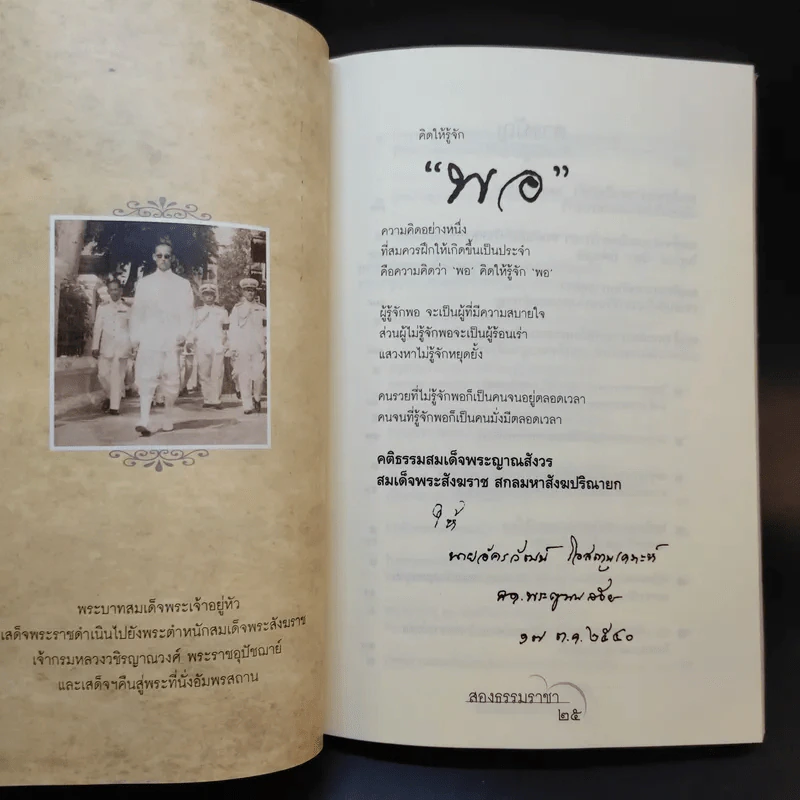 พระบาทสมเด็จพระเจ้าอยู่หัว
เสด็จพระราชดำเนินไปยังพระตำหนักสมเด็จพระสังฆราช
เจ้ากรมหลวงวชิรญาณวงศ์ พระราชอุปัชฌาย์
และเสด็จฯคืนสู่พระที่นั่งอัมพรสถาน
คิดให้รู้จัก
“พอ”
ความคิดอย่างหนึ่ง
ที่สมควรฝึกให้เกิดขึ้นเป็นประจำ
คือความคิดว่า ‘พอ’ คิดให้รู้จัก ‘พอ’
ผู้รู้จักพอ จะเป็นผู้ที่มีความสบายใจ
ส่วนผู้ไม่รู้จักพอจะเป็นผู้ร้อนเร่า
แสวงหาไม่รู้จักหยุดยั้ง
คนรวยที่ไม่รู้จักพอก็เป็นคนจนอยู่ตลอดเวลา
คนจนที่รู้จักพอก็เป็นคนมั่งมีตลอดเวลา
คติธรรมสมเด็จพระญาณสังวร
สมเด็จพระสังฆราช สกลมหาสังฆปริณายก
ให้
นายอัครวัฒน์
๑๗ ต.ค. ๒๕๔๐
สองธรรมราชา
๒๕